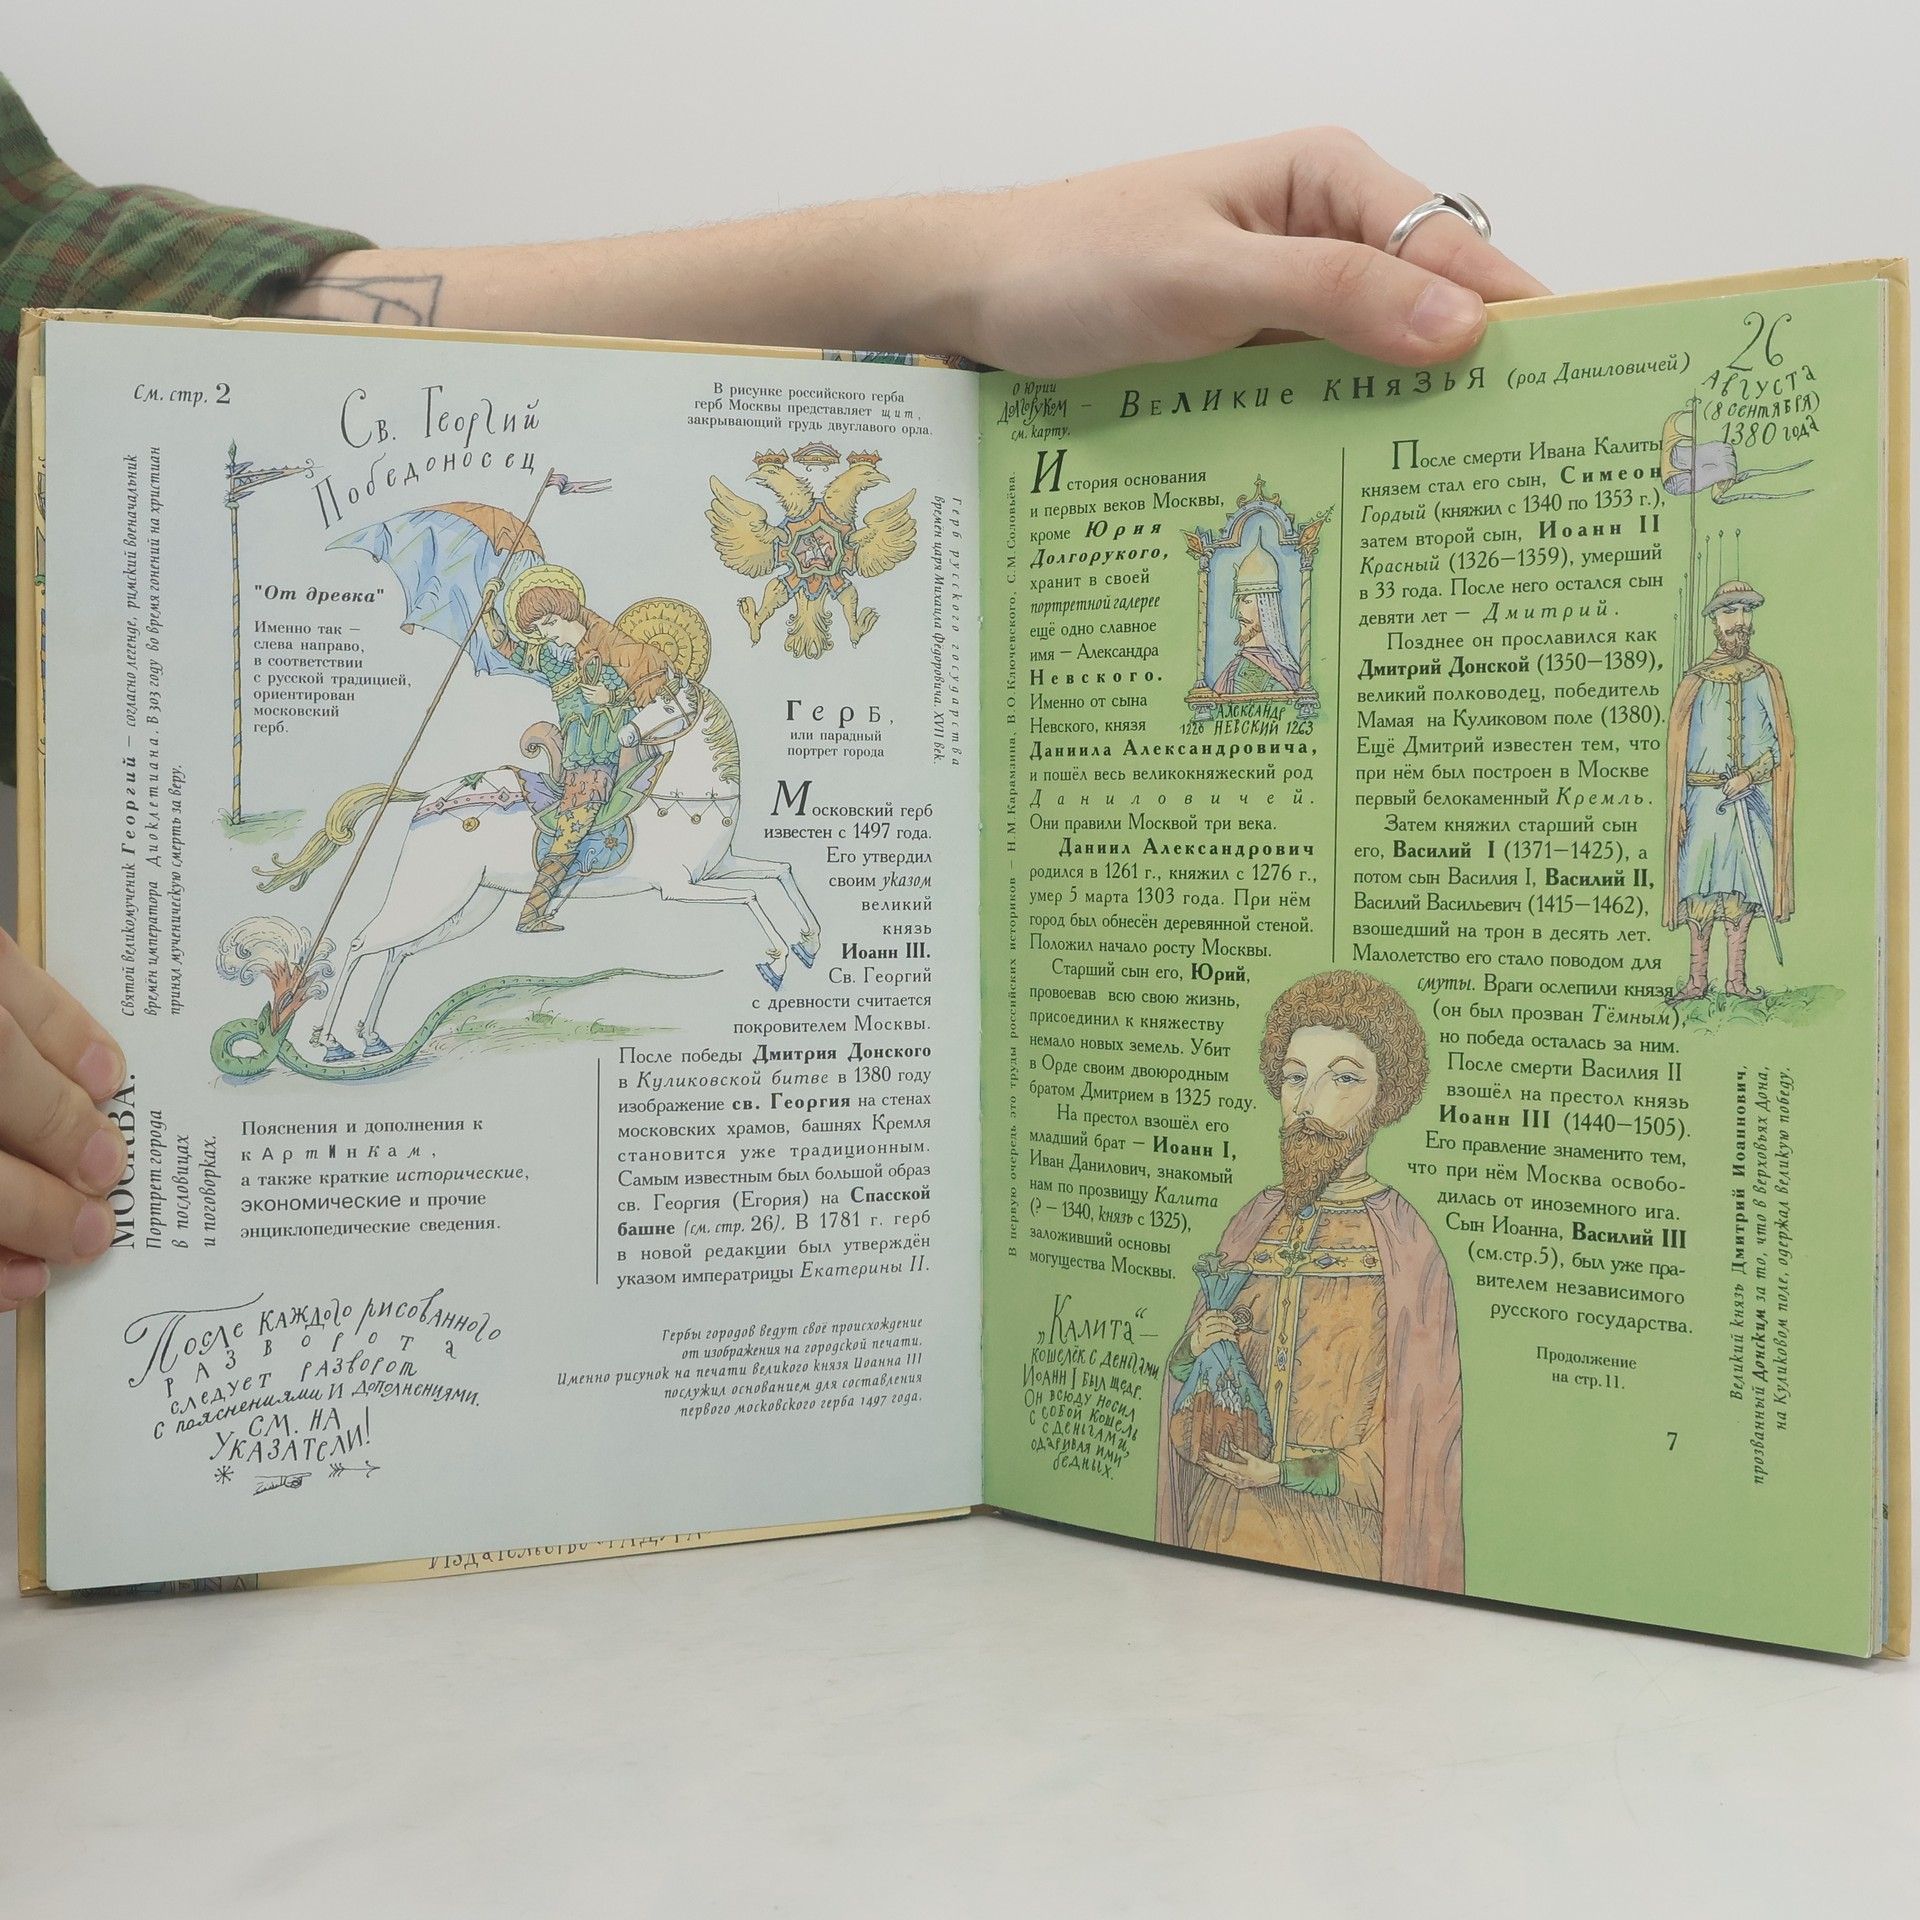 См. стр. 2
Св. Георгий
Победоносец
В рисунке российского герба
герб Москвы представляет щит,
закрывающий грудь двуглавого орла.
Святой великомученик Георгий — согласно легенде, римский военачальник
времён императора Диоклетиана. В 303 году во время гонений на христиан
принял мученическую смерть за веру.
"От древка"
Именно так —
слева направо,
в соответствии
с русской традицией,
ориентирован
московский
герб.
Герб русского государства
времён царя Михаила Фёдоровича. XVII век.
Герб,
или парадный
портрет города
Московский герб
известен с 1497 года.
Его утвердил
своим указом
великий
князь
Иоанн III.
Св. Георгий
с древности считается
покровителем Москвы.
После победы Дмитрия Донского
в Куликовской битве в 1380 году
изображение св. Георгия на стенах
московских храмов, башнях Кремля
становится уже традиционным.
Самым известным был большой образ
св. Георгия (Егория) на Спасской
башне (см. стр. 26). В 1781 г. герб
в новой редакции был утверждён
указом императрицы Екатерины II.
МОСКВА.
Портрет города
в пословицах
и поговорках.
Пояснения и дополнения к
картинкам,
а также краткие исторические,
экономические и прочие
энциклопедические сведения.
После каждого рисованного
разворота
следует разворот
с пояснениями и дополнениями.
См. на
указатели!
Гербы городов ведут своё происхождение
от изображения на городской печати.
Именно рисунок на печати великого князя Иоанна III
послужил основанием для составления
первого московского герба 1497 года.
О Юрии
Долгоруком
см. карту.
– Великие князья (род Даниловичей)
26
августа
(8 сентября)
1380 года
В первую очередь это труды российских историков — Н.М.Карамзина, В.О.Ключевского, С.М.Соловьёва.
История основания
и первых веков Москвы,
кроме Юрия
Долгорукого,
хранит в своей
портретной галерее
ещё одно славное
имя — Александра
Невского.
Именно от сына
Невского, князя
Даниила Александровича,
и пошёл весь великокняжеский род
Даниловичей.
Они правили Москвой три века.
Даниил Александрович
родился в 1261 г., княжил с 1276 г.,
умер 5 марта 1303 года. При нём
город был обнесён деревянной стеной.
Положил начало росту Москвы.
Старший сын его, Юрий,
провоевав всю свою жизнь,
присоединил к княжеству
немало новых земель. Убит
в Орде своим двоюродным
братом Дмитрием в 1325 году.
На престол взошёл его
младший брат — Иоанн I,
Иван Данилович, знакомый
нам по прозвищу Калита
(? – 1340, князь с 1325),
заложивший основы
могущества Москвы.
Александр
1220 Невский 1263
„Калита“ —
кошелёк с деньгами.
Иоанн I был щедр.
Он всюду носил
с собой кошель
с деньгами,
одаривая ими
бедных.
После смерти Ивана Калиты
князем стал его сын, Симеон
Гордый (княжил с 1340 по 1353 г.),
затем второй сын, Иоанн II
Красный (1326—1359), умерший
в 33 года. После него остался сын
девяти лет — Дмитрий.
Позднее он прославился как
Дмитрий Донской (1350—1389),
великий полководец, победитель
Мамая на Куликовом поле (1380).
Ещё Дмитрий известен тем, что
при нём был построен в Москве
первый белокаменный Кремль.
Затем княжил старший сын
его, Василий I (1371—1425), а
потом сын Василия I, Василий II,
Василий Васильевич (1415—1462),
взошедший на трон в десять лет.
Малолетство его стало поводом для
смуты. Враги ослепили князя
(он был прозван Тёмным),
но победа осталась за ним.
После смерти Василия II
взошёл на престол князь
Иоанн III (1440—1505).
Его правление знаменито тем,
что при нём Москва освобо-
дилась от иноземного ига.
Сын Иоанна, Василий III
(см.стр.5), был уже пра-
вителем независимого
русского государства.
Продолжение
на стр.11.
7
Великий князь Дмитрий Иоаннович,
прозванный Донским за то, что в верховьях Дона,
на Куликовом поле, одержал великую победу.